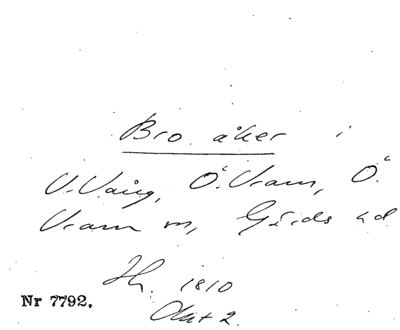 Bro åker i
V. Vång, Ö. Vram, Ö.
Vram sn, Gärds hd
Jh. 1810
Akt 2
Nr 7792.